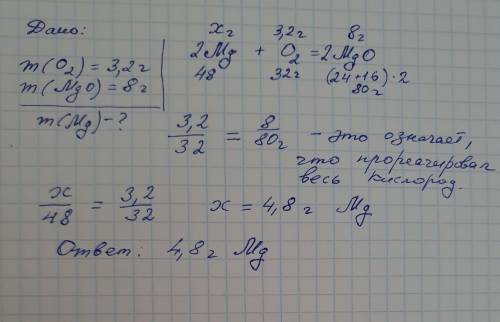 Дано:
m(O₂) = 3,2г
m(MgO) = 8г
m(Mg) - ?
xг 3,2г 8г
2Mg + O₂ = 2MgO
48 32г (24+16)·2
80г
3,2/32 = 8/80г - это означает,
что прореагировал
весь кислород.
x/48 = 3,2/32 x = 4,8 г Mg
Ответ: 4,8 г Mg